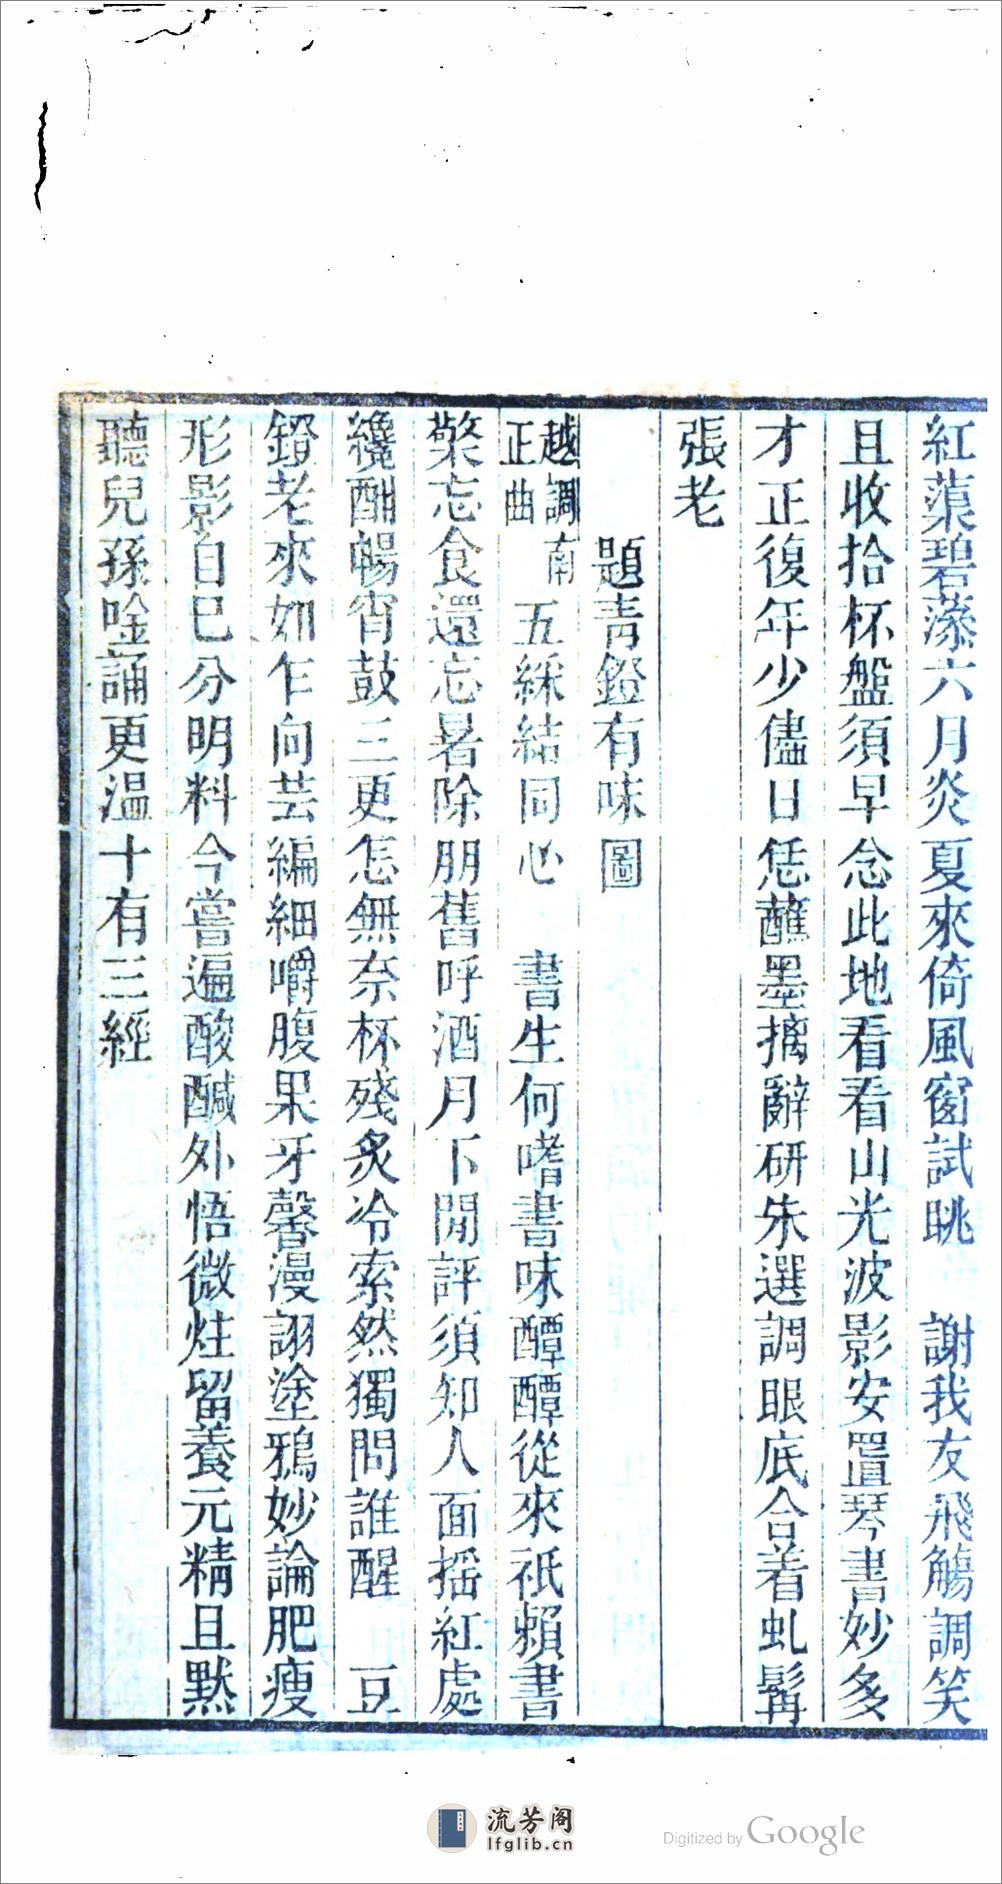 紅蕖碧藻六月炎夏來倚風窗試眺　謝我友飛觴調笑
且收拾杯盤須早念此地看看山光波影安置琴書妙多
才正復年少儘日恁蘸墨摛辭研朱選調眼底合着虬髯
張老
題青鐙有味圖
越調南正曲　五綵結同心　書生何嗜書味醰醰從來祇賴書
檠忘食還忘暑除朋舊呼酒月下閒評須知人面搖紅處
纔酣暢宵鼓三更怎無奈杯殘炙冷索然獨問誰醒　豆
鐙老來如乍向芸編細嚼腹果牙馨漫詡塗鴉妙論肥瘦
形影自巳分明料今嘗遍酸醎外悟微炷留養元精且默
聽兒孫唫誦更溫十有三經
流芳阁
lfglib.cn
Digitized by Google